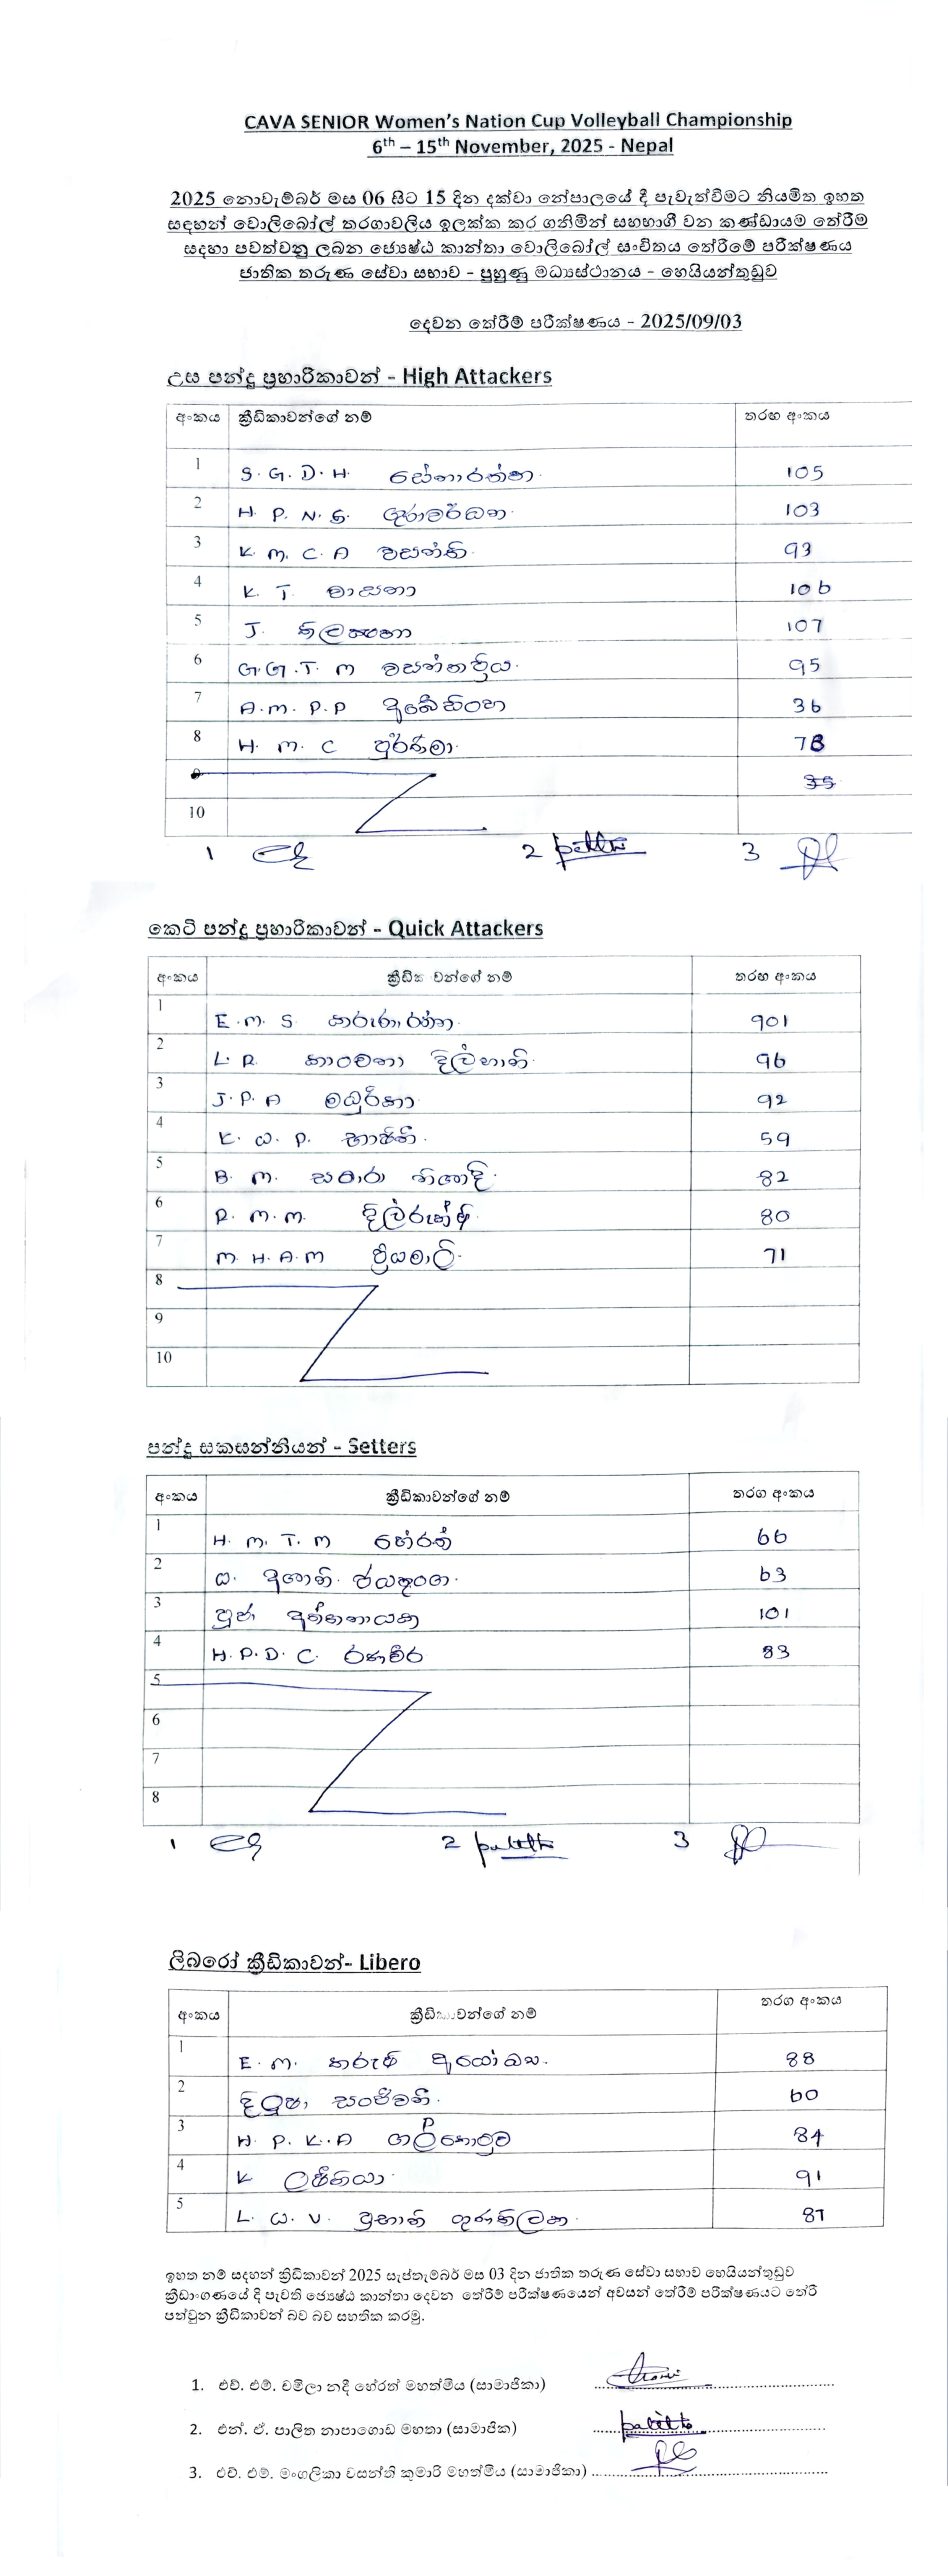 CAVA SENIOR Women's Nation Cup Volleyball Championship
6th – 15th November, 2025 - Nepal
2025 නොවැම්බර් මස 06 සිට 15 දින දක්වා නේපාලයේ දී පැවැත්වීමට නියමිත ඉහත
සඳහන් වොලිබෝල් තරගාවලිය ඉලක්ක කර ගනිමින් සහභාගී වන කණ්ඩායම තේරීම
සදහා පවත්වනු ලබන ජ්‍යෙෂ්ඨ කාන්තා වොලිබෝල් සංචිතය තේරීමේ පරීක්ෂණය
ජාතික තරුණ සේවා සභාව - පුහුණු මධ්‍යස්ථානය - හෙයියන්තුඩුව
දෙවන තේරීම් පරීක්ෂණය - 2025/09/03
උස පන්දු ප්‍රහාරිකාවන් - High Attackers
අංකය ක්‍රීඩිකාවන්ගේ නම් තරඟ අංකය
1 S. G. D. H. සේනාරත්න 105
2 H. P. N. S. ගුණවර්ධන 103
3 K. M. C. A වසන්ති 93
4 K. T. වාසනා 106
5 J. තිලක්ෂනා 107
6 G. G. T. M වසන්තප්‍රිය 95
7 A. M. P. P අබේසිංහ 36
8 H. M. C පූර්ණිමා 78
9 35
10
1 2 3
කෙටි පන්දු ප්‍රහාරිකාවන් - Quick Attackers
අංකය ක්‍රීඩික වන්ගේ නම් තරඟ අංකය
1 E. M. S කරුණාරත්න 901
2 L. R. කාංචනා දිල්හානි 96
3 J. P. A මධුරිකා 92
4 K. W. P. භාජිනී 59
5 B. M. සචාරා නිශාදි 82
6 R. M. M. දිල්රුක්ෂි 80
7 M. H. A. M ප්‍රියමාලි 71
8
9
10
පන්දු සකසන්නියන් - Setters
අංකය ක්‍රීඩිකාවන්ගේ නම් තරග අංකය
1 H. M. T. M හේරත් 66
2 ඩ. අශානි ජයතුංග 63
3 පූජා අත්තනායක 101
4 H. P. D. C. රණවීර 83
5
6
7
8
1 2 3
ලිබරෝ ක්‍රීඩිකාවන්- Libero
අංකය ක්‍රීඩිකාවන්ගේ නම් තරග අංකය
1 E. M. තරුෂි අයෝධ්‍යා 88
2 දිලූෂා සංජීවනී 60
3 H. P. K. A ගල්කොටුව 84
4 K ලජීනියා 91
5 L. W. V. ප්‍රභානි ගුණතිලක 87
ඉහත නම් සදහන් ක්‍රිඩිකාවන් 2025 සැප්තැම්බර් මස 03 දින ජාතික තරුණ සේවා සභාව හෙයියන්තුඩුව
ක්‍රීඩාංගණයේ දි පැවති ජ්‍යෙෂ්ඨ කාන්තා දෙවන තේරීම් පරීක්ෂණයෙන් අවසන් තේරීම් පරීක්ෂණයට තේරී
පත්වුන ක්‍රීඩිකාවන් බව බව සහතික කරමු.
1. එච්. එම්. චමිලා නදී හේරත් මහත්මීය (සාමාජිකා)
2. එන්. ඒ. පාලිත නාපාගොඩ මහතා (සාමාජික)
3. එච්. එම්. මංගලිකා වසන්ති කුමාරි මහත්මීය (සාමාජිකා)